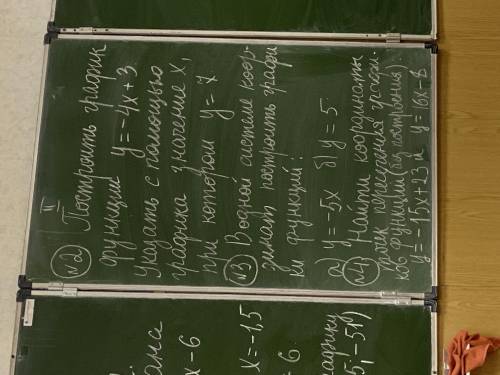 II
№2 Построить график
функции y = -4x + 3
Указать с помощью
графика значение x,
при котором y = 7
№3 В одной системе коор-
динат построить графи
ки функций:
а) y = -5x б) y = 5
№4 Найти координаты
точек пересечения графи-
ков функций (без построения).
y = -15x + 23 и y = 16x - 8
x - 6
x = -1,5
+ 6
графику
5; -51)